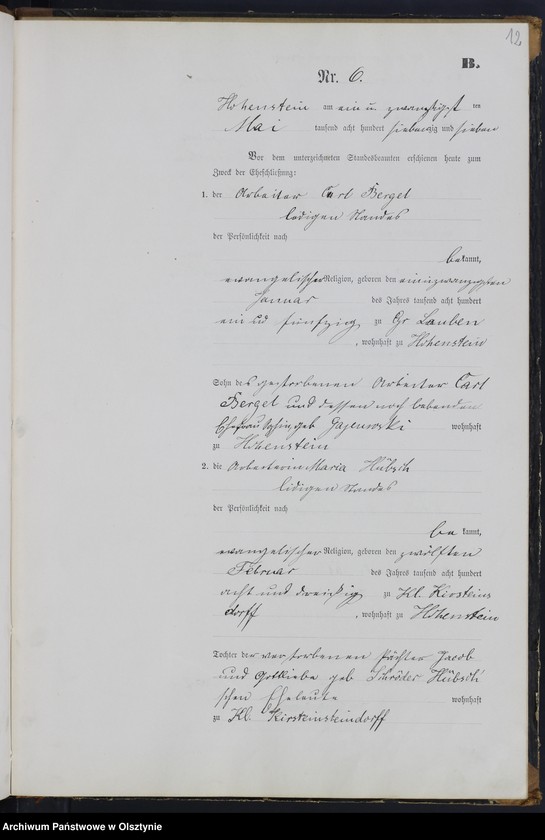 12
B.
Nr. 6.
Hohenstein am ein u. zwanzigst ten
Mai tausend acht hundert siebenzig und sieben
Vor dem unterzeichneten Standesbeamten erschienen heute zum
Zweck der Eheschließung:
1. der Arbeiter Carl Bergel
ledigen Standes
der Persönlichkeit nach
bekannt,
evangelischer Religion, geboren den einundzwanzigsten
Januar des Jahres tausend acht hundert
ein und fünfzig zu Gr Lauben
, wohnhaft zu Hohenstein
Sohn des gestorbenen Arbeiter Carl
Bergel und dessen noch lebenden
Ehefrau geb Gajewski wohnhaft
zu Hohenstein
2. die Arbeiterin Maria Hübsch
ledigen Standes
der Persönlichkeit nach
be kannt,
evangelischer Religion, geboren den zwölften
Februar des Jahres tausend acht hundert
acht und dreißig zu Kl. Kirsteins
dorff , wohnhaft zu Hohenstein
Tochter der verstorbenen Pächter Jacob
und Gottliebe geb Schröder Hübsch
schen Eheleute wohnhaft
zu Kl. Kirsteinsteindorff
Archiwum Państwowe w Olsztynie